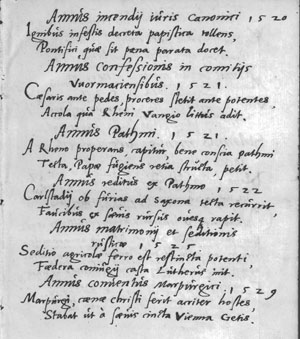 Annus incendij iuris Canonici 1520
Ignibus infestis decreta papistica tollens,
Pontifici quæ sit pœna parata docet.
Annus Confessionis in comitijs
Vuormaciensibus. 1521.
Cæsaris ante pedes, proceres stetit ante potentes,
Accola qua Rheni Vangio littus adit.
Annus Pathmi. 1521.
A Rheno properans capitur bene conscia pathmi
Tecta, Papæ fugiens retia structa, petit.
Annus reditus ex Pathmo 1522
Carlstadij ob furias ad saxona tecta recurrit,
Faucibus ex sæuis rursus ouesq rapit.
Annus matrimonij et seditionis
rusticæ 1525
Seditio agricolæ ferro est restincta potenti,
Fœdera coniugij casta Lutherus init.
Annus conuentus Marpurgici 1529
Marpurgi, cænæ christi ferit acriter hostes,
Stabat ut à sæuis cincta Vienna Getis.